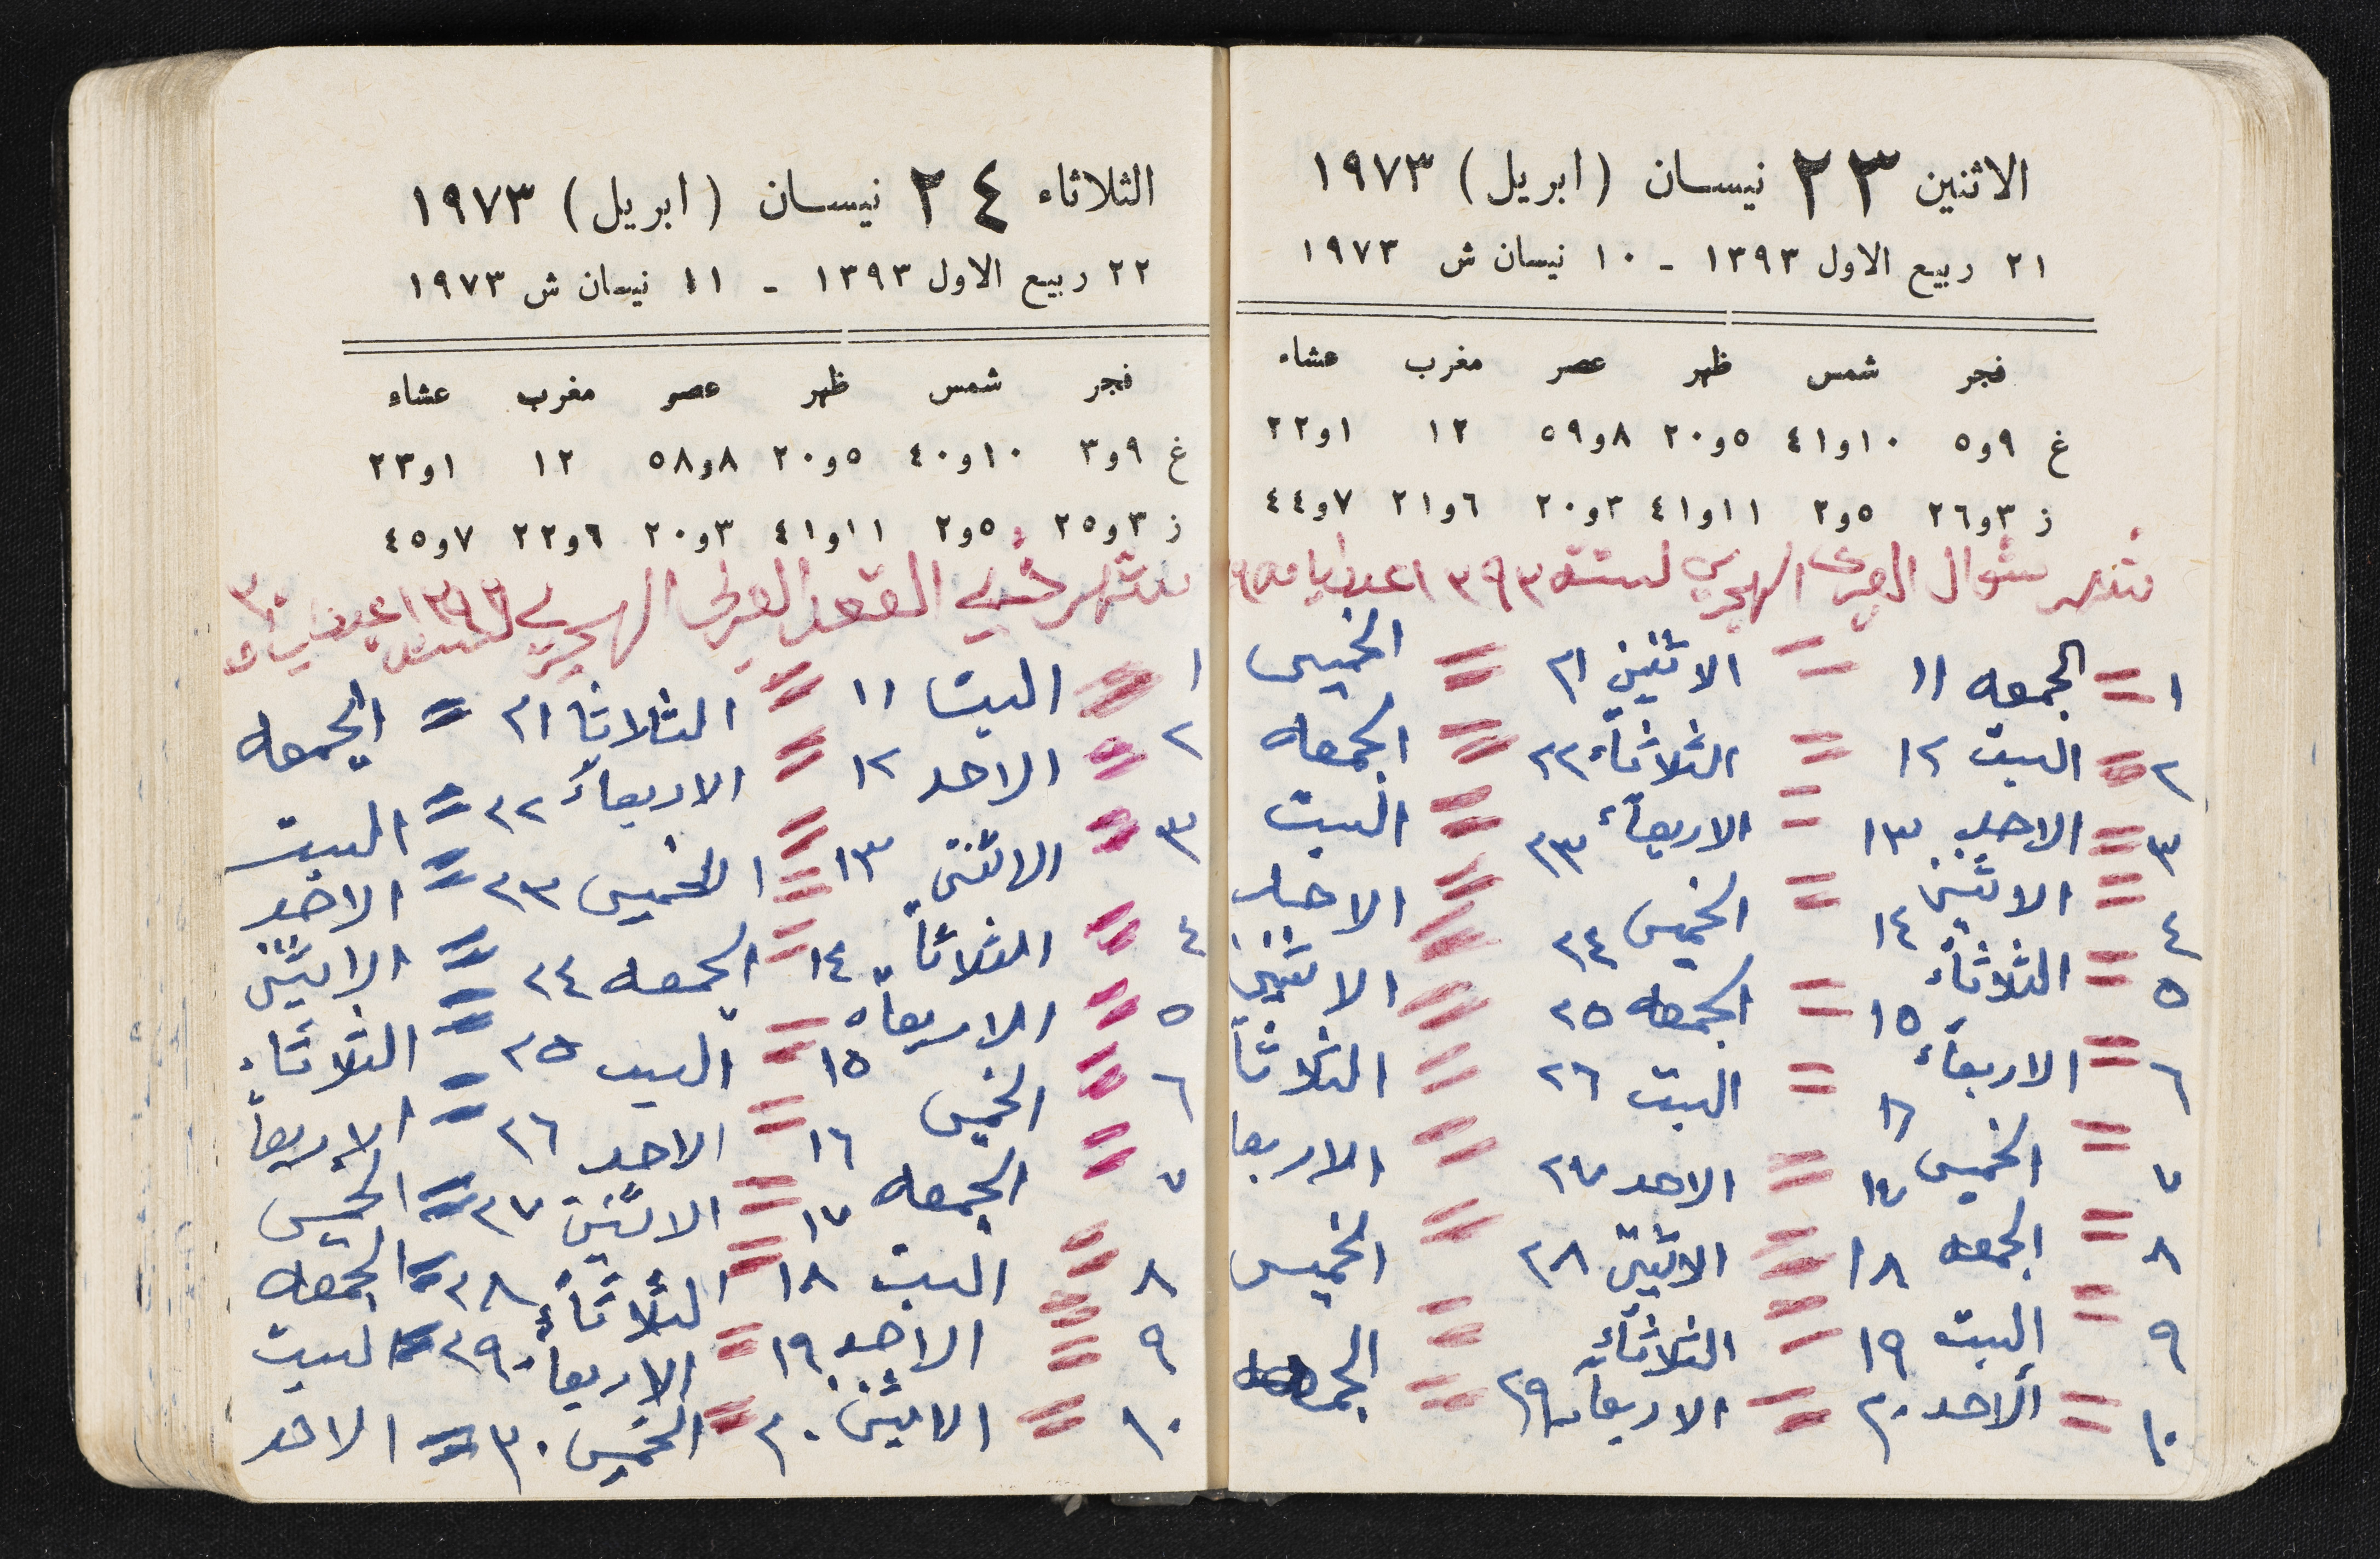 الاثنين ٢٣ نيسان (ابريل) ١٩٧٣
٢١ ربيع الاول ١٣٩٣ - ١٠ نيسان ش ١٩٧٣
فجر شمس ظهر عصر مغرب عشاء
غ ٩و٥ ١٠و٤١ ٥و٢٠ ٨و٥٩ ١٢ ١و٢٢
ز ٣و٢٦ ٥و٢ ١١و٤١ ٣و٢٠ ٦و٢١ ٧و٤٤
شهر شوال العربي الهجري لسنة ١٣٩٣ عدد ايامه ٢٩
١ = الجمعه ١١ = الاثنين ٢١ = الخميس
٢ = السبت ١٢ = الثلاثاء ٢٢ = الجمعه
٣ = الاحد ١٣ = الاربعاء ٢٣ = السبت
٤ = الاثنين ١٤ = الخميس ٢٤ = الاحد
٥ = الثلاثاء ١٥ = الجمعه ٢٥ = الاثنين
٦ = الاربعاء ١٦ = السبت ٢٦ = الثلاثا
٧ = الخميس ١٧ = الاحد ٢٧ = الاربعا
٨ = الجمعه ١٨ = الاثنين ٢٨ = الخميس
٩ = السبت ١٩ = الثلاثاء ٢٩ = الجمعه
١٠ = الاحد ٢٠ = الاربعاء
الثلاثاء ٢٤ نيسان (ابريل) ١٩٧٣
٢٢ ربيع الاول ١٣٩٣ - ١١ نيسان ش ١٩٧٣
فجر شمس ظهر عصر مغرب عشاء
غ ٩و٣ ١٠و٤٠ ٥و٢٠ ٨و٥٨ ١٢ ١و٢٣
ز ٣و٢٥ ٥و٢ ١١و٤١ ٣و٢٠ ٦و٢٢ ٧و٤٥
شهر ذي القعد العربي الهجري لسنة ١٣٩٣ ٣٠
١ = السبت ١١ = الثلاثا ٢١ = الجمعه
٢ = الاحد ١٢ = الاربعاء ٢٢ = السبت
٣ = الاثنين ١٣ = الخميس ٢٣ = الاحد
٤ = الثلاثاء ١٤ = الجمعه ٢٤ = الاثنين
٥ = الاربعاء ١٥ = السبت ٢٥ = الثلاثاء
٦ = الخميس ١٦ = الاحد ٢٦ = الاربعا
٧ = الجمعه ١٧ = الاثنين ٢٧ = الخميس
٨ = السبت ١٨ = الثلاثاء ٢٨ = الجمعه
٩ = الاحد ١٩ = الاربعاء ٢٩ = السبت
١٠ = الاثنين ٢٠ = الخميس ٣٠ = الاحد